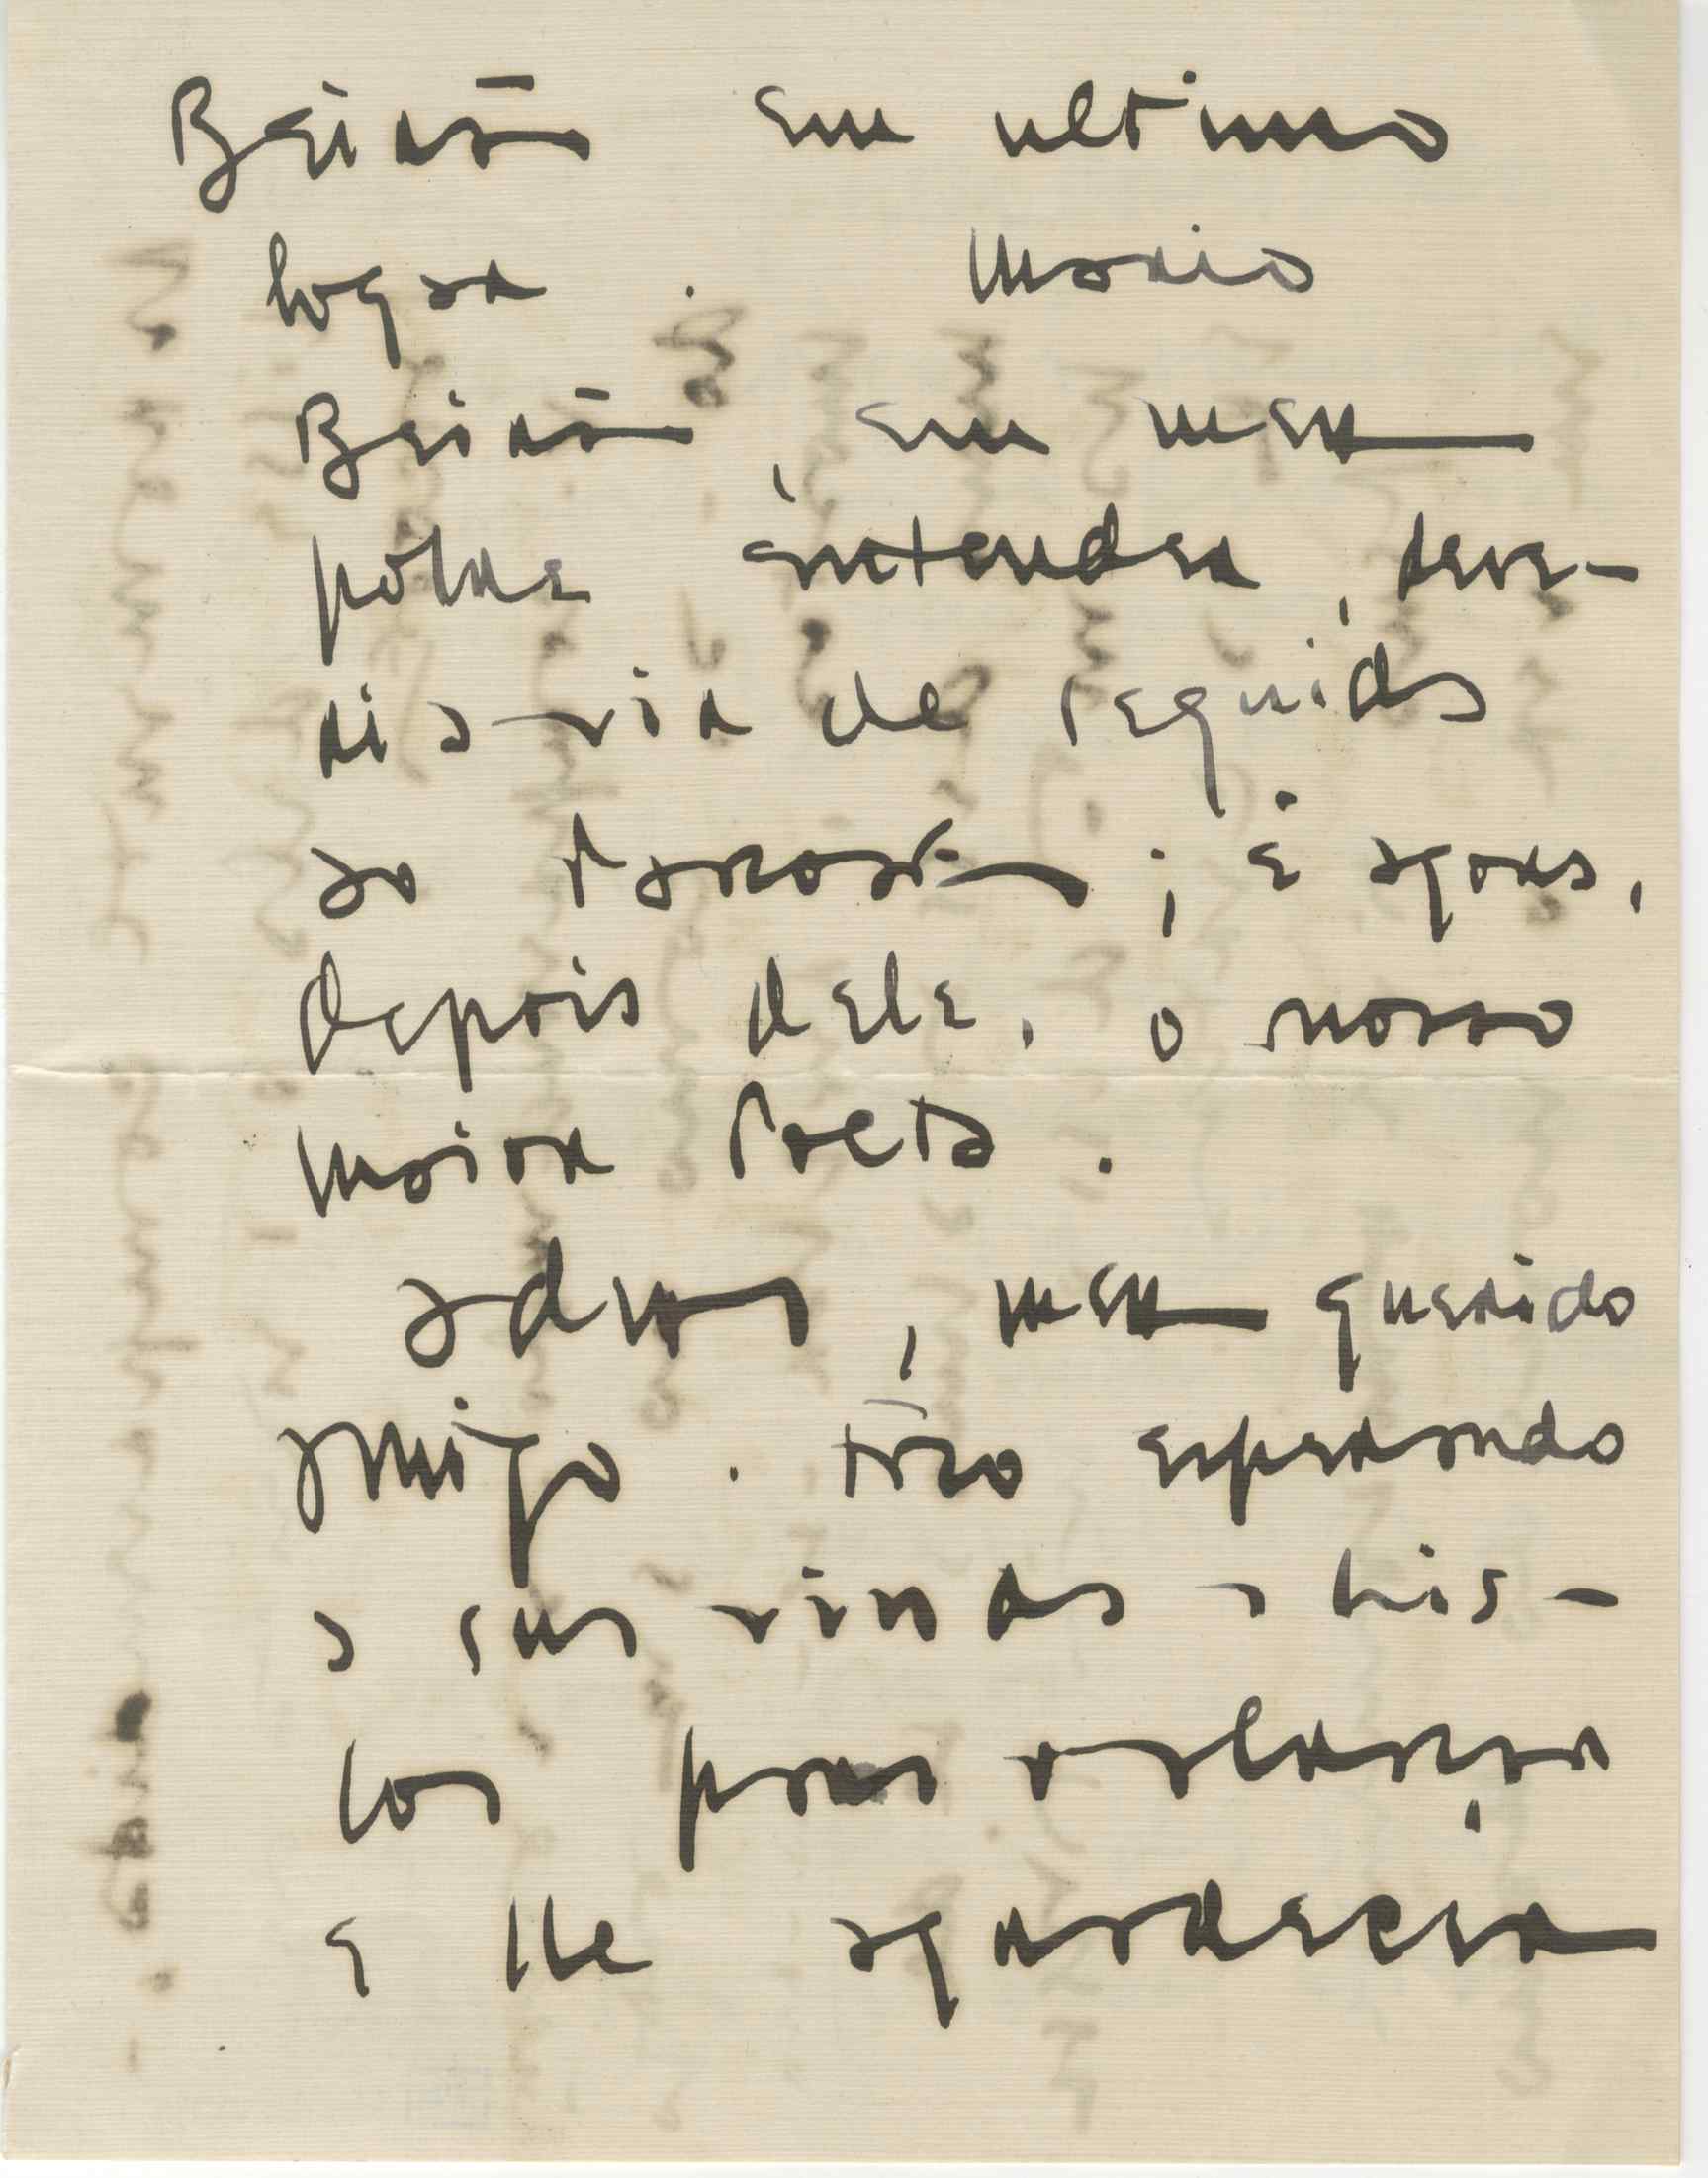 Beirão em ultimo
logar. Mario
Beirão, em meu
pobre entender, deve-
ria vir de seguida
ao Pascoaes; é agora,
depois dele, o nosso
maior Poeta.
Adeus, meu querido
amigo. Fico esperando
a sua vinda a Lis-
boa para o abraçar
e lhe agradecer